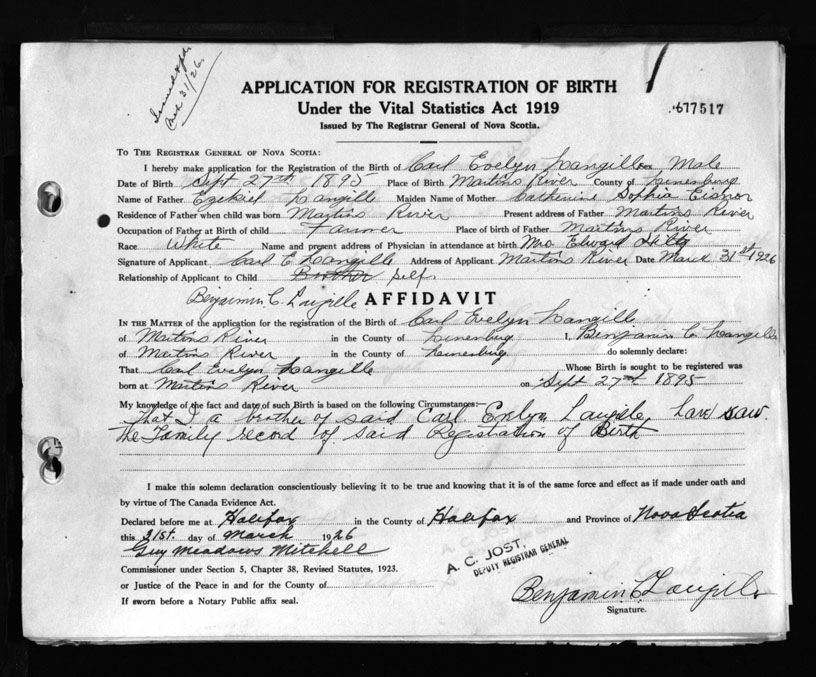 Issued
Mch 31/26.
APPLICATION FOR REGISTRATION OF BIRTH
Under the Vital Statistics Act 1919
Issued by The Registrar General of Nova Scotia.
677517
TO THE REGISTRAR GENERAL OF NOVA SCOTIA:
I hereby make application for the Registration of the Birth of Carl Evelyn Langille Male
Date of Birth Sept 27th 1895 Place of Birth Martins River County of Lunenburg
Name of Father Ezekiel Langille Maiden Name of Mother Catherine Sophia Eisnor
Residence of Father when child was born Martins River Present address of Father Martins River
Occupation of Father at Birth of child Farmer Place of birth of Father Martins River
Race White Name and present address of Physician in attendance at birth Mrs Edward Hiltz
Signature of Applicant Carl E Langille Address of Applicant Martins River Date March 31st 1926
Relationship of Applicant to Child Brother Self
Benjamin C. Langille AFFIDAVIT
IN THE MATTER of the application for the registration of the Birth of Carl Evelyn Langille
of Martins River in the County of Lunenburg I, Benjamin C Langille
of Martins River in the County of Lunenburg do solemnly declare:
That Carl Evelyn Langille Whose Birth is sought to be registered was
born at Martins River on Sept 27th 1895
My knowledge of the fact and date of such Birth is based on the following Circumstances:—
That I a brother of said Carl Evelyn Langille have saw
the Family record of said Registration of Birth
I make this solemn declaration conscientiously believing it to be true and knowing that it is of the same force and effect as if made under oath and
by virtue of The Canada Evidence Act.
Declared before me at Halifax in the County of Halifax and Province of Nova Scotia
this 31st. day of March 1926
Guy Meadows Mitchell
Commissioner under Section 5, Chapter 38, Revised Statutes, 1923.
A. C. JOST,
DEPUTY REGISTRAR GENERAL
or Justice of the Peace in and for the County of
If sworn before a Notary Public affix seal.
Benjamin C Langille
Signature.